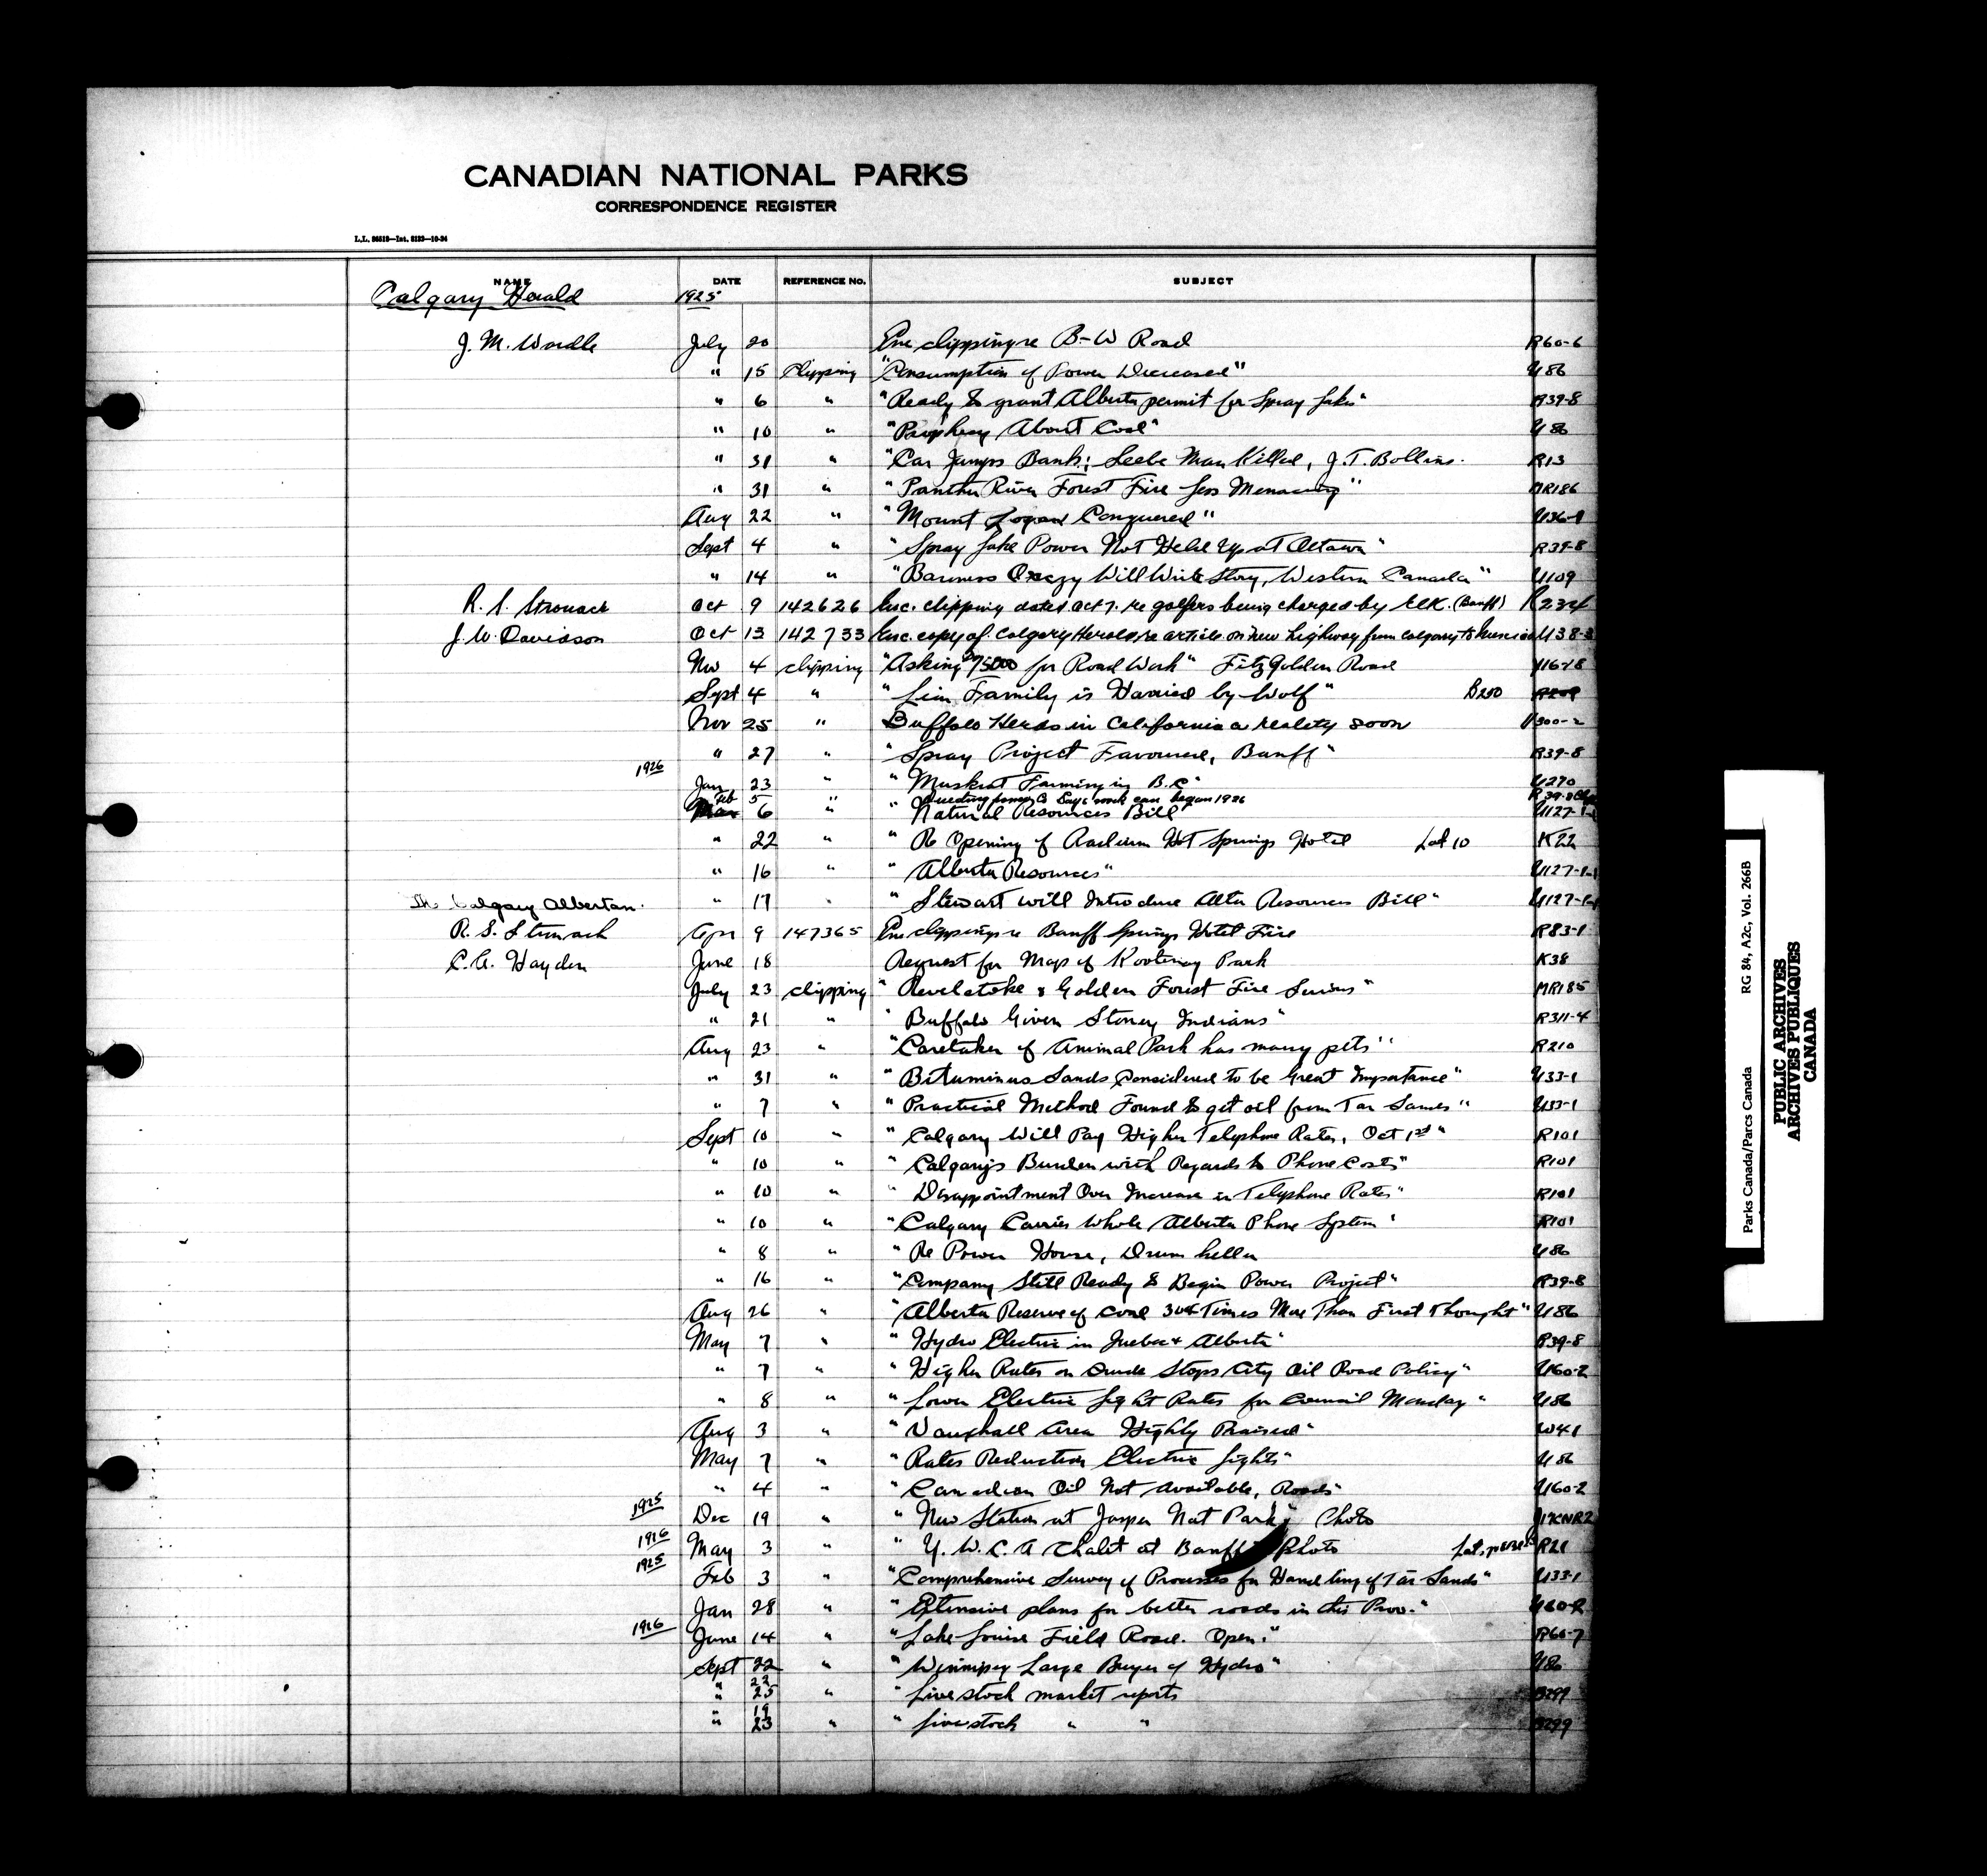 CANADIAN NATIONAL PARKS
CORRESPONDENCE REGISTER
NAME DATE REFERENCE NO. SUBJECT
Calgary Herald 1925
J. M. Wardle July 20 Enc clipping re B-W Road R60-6
" 15 Clipping "Consumption of Power Decreased" U86
" 6 " "Ready to grant Alberta permit for Spray Lakes" R39-8
" 10 " "Prophesy About Coal" U86
" 31 " "Car Jumps Bank; Seebe Man Killed, J.T. Bollins. R13
" 31 " "Panther River Forest Fire Less Menacing" MR186
Aug 22 " "Mount Logan Conquered" U36-1
Sept 4 " "Spray Lake Power Not Held Up at Ottawa" R39-8
" 14 " "Baroness Orczy Will Write Story, Western Canada" U109
R. S. Stronach Oct 9 142626 Enc. clipping dated Oct 7. re golfers being charged by Elk. (Banff) R234
J. W. Davidson Oct 13 142733 Enc. copy of Calgary Herald re article on new highway from Calgary to U38-3
Nov 4 clipping "Asking 75000 for Road Work" Fitz Golden Road
Sept 4 " "Lion Family is Harried by Wolf" B200
Nov 25 " Buffalo Herds in California a reality soon 300-2
" 27 " "Spray Project Favoured, Banff" R39-8
1926
Jan 23 " "Muskrat Farming in B.C" U270
Feb 5 " " says work can began 1926
6 " Natural Resources Bill U127-1
" 22 " " Re Opening of Radium Hot Springs Hotel Lot 10 K22
" 16 " "Alberta Resources" U127-1
The Calgary Albertan. " 17 " "Stewart will Introduce Alta Resources Bill" U127-1
R. S. Stronach Apr 9 147365 Enc clipping re Banff Springs Hotel Fire R83-1
C. A. Hayden June 18 Request for Map of Kootenay Park K38
July 23 clipping "Revelstoke & Golden Forest Fire Serious" MR185
" 21 " "Buffalo Given Stoney Indians" R311-4
Aug 23 " "Caretaker of Animal Park has many pets" R210
" 31 " "Bituminus Sands Considered to be Great Importance" U33-1
" 7 " "Practical Method Found to get oil from Tar Sands" U33-1
Sept 10 " "Calgary Will Pay Higher Telephone Rates, Oct 1st" R101
" 10 " "Calgary's Burden with Regards to Phone Costs" R101
" 10 " "Disappointment Over Increase in Telephone Rates" R101
" 10 " "Calgary Carries Whole Alberta Phone System" R101
" 8 " "Re Power House, Drumheller U86
" 16 " "Company Still Ready to Begin Power Project" R39-8
Aug 26 " "Alberta Reserve of Coal Times More Than First Thought" U86
May 7 " "Hydro Electric in Quebec & Alberta" R39-8
" 7 " "Higher Rates on Crude Stops City Oil Road Policy" U160-2
" 8 " "Lower Electric Light Rates for Council Monday" U86
Aug 3 " "Vauxhall Area Highly Praised" W41
May 7 " "Rates Reduction Electric Lights" U86
" 4 " "Canadian Oil Not Available, Roads" U160-2
1925 Dec 19 " "New Station at Jasper Nat Park" Photo
1926 May 3 " "Y. W. C. A Chalet at Banff" Photo R21
1925 Feb 3 " "Comprehensive Survey of Processes for Handling of Tar Sands" U33-1
Jan 28 " "Extensive plans for better roads in this Prov."
1926 June 14 " "Lake Louise Field Road. Open." R60-7
Sept 22 " "Winnipeg Large Buyer of Hydro" U86
" 22
" 25 " "Live stock market reports B299
19
" 23 " "Live stock " " B299
Parks Canada/Parcs Canada RG 84, A2c, Vol. 266B
PUBLIC ARCHIVES
ARCHIVES PUBLIQUES
CANADA